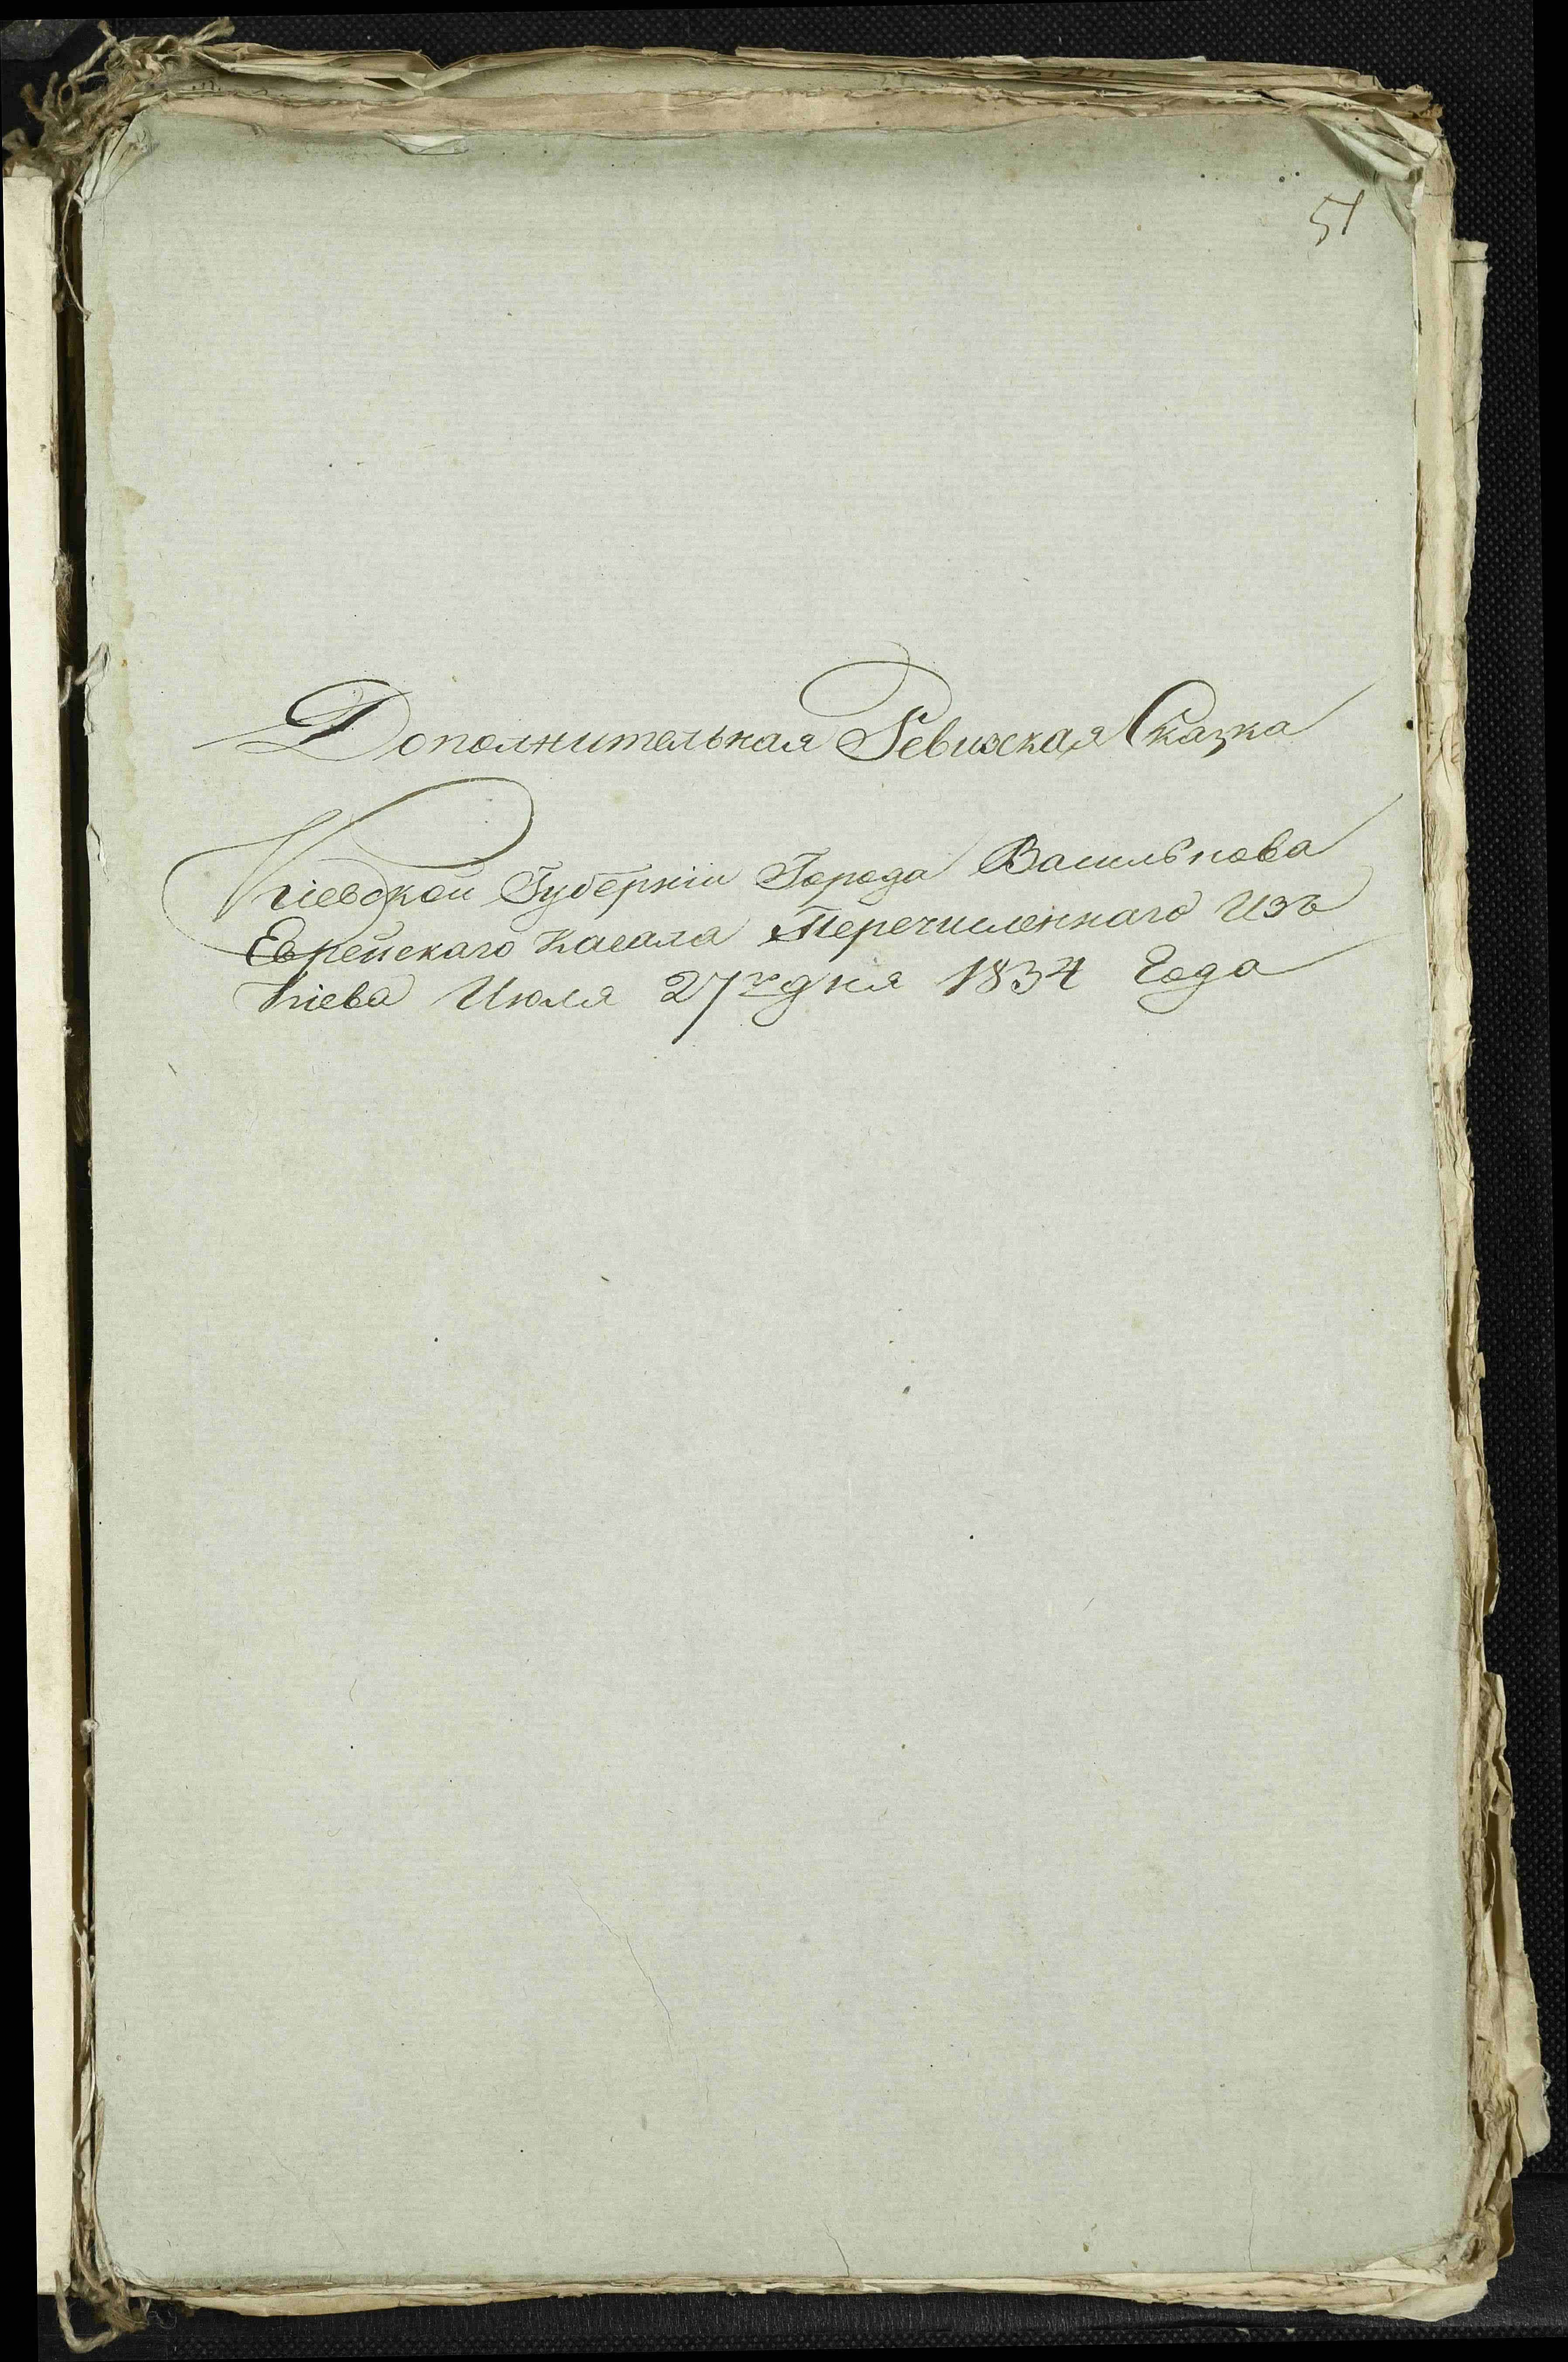 51
Дополнительная Ревизская Сказка
Кіевской Губерніи Города Василькова
Еврейскаго Кагала Перечисленнаго Изъ
Кіева Июля 27го дня 1834 Года